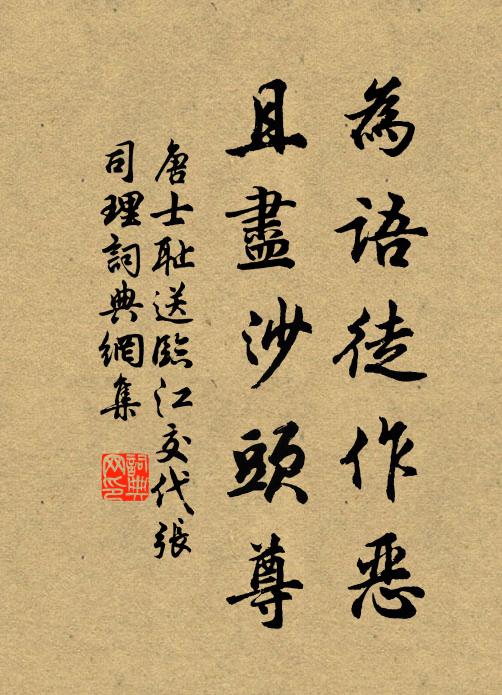 為語徒作恶
且盡沙頭尊
唐士耻送臨江交代張
司理詞典網集
詞典
网印